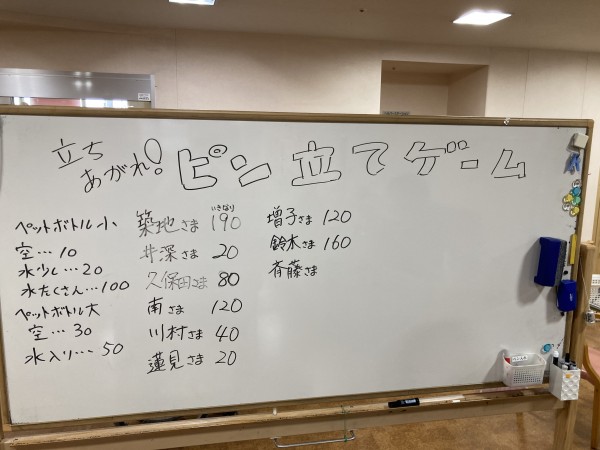 立ち
あがれ!
ピン立てゲーム
ペットボトル小
空…10
水少し…20
水たくさん…100
ペットボトル大
空…30
水入り…50
いきなり
築地さま 190
井深さま 20
久保田さま 80
南さま 120
川村さま 40
蓮見さま 20
増子さま 120
鈴木さま 160
斉藤さま